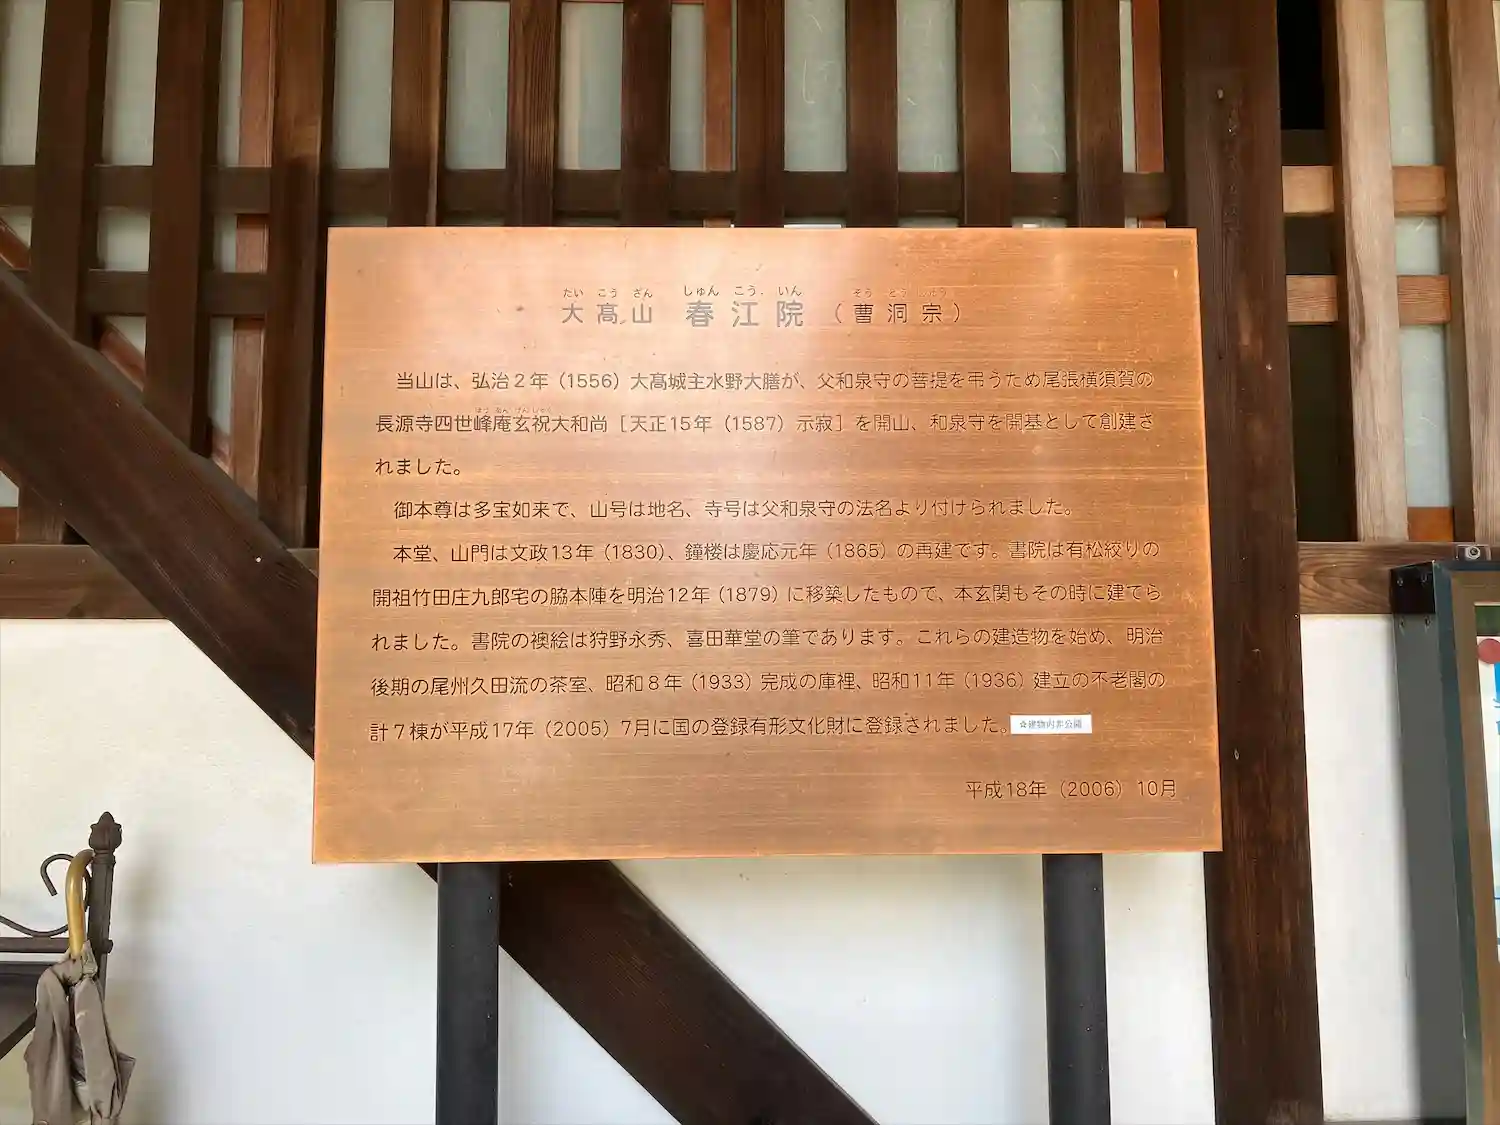 たい こう ざん しゅん こう いん そう とう しゅう
大髙山 春江院（曹洞宗）
当山は、弘治２年（1556）大髙城主水野大膳が、父和泉守の菩提を弔うため尾張横須賀の
ほう あん げん しゅく
長源寺四世峰庵玄祝大和尚［天正15年（1587）示寂］を開山、和泉守を開基として創建さ
れました。
御本尊は多宝如来で、山号は地名、寺号は父和泉守の法名より付けられました。
本堂、山門は文政13年（1830）、鐘楼は慶応元年（1865）の再建です。書院は有松絞りの
開祖竹田庄九郎宅の脇本陣を明治12年（1879）に移築したもので、本玄関もその時に建てら
れました。書院の襖絵は狩野永秀、喜田華堂の筆であります。これらの建造物を始め、明治
後期の尾州久田流の茶室、昭和８年（1933）完成の庫裡、昭和11年（1936）建立の不老閣の
計７棟が平成17年（2005）7月に国の登録有形文化財に登録されました。☆建物内非公開
平成18年（2006）10月